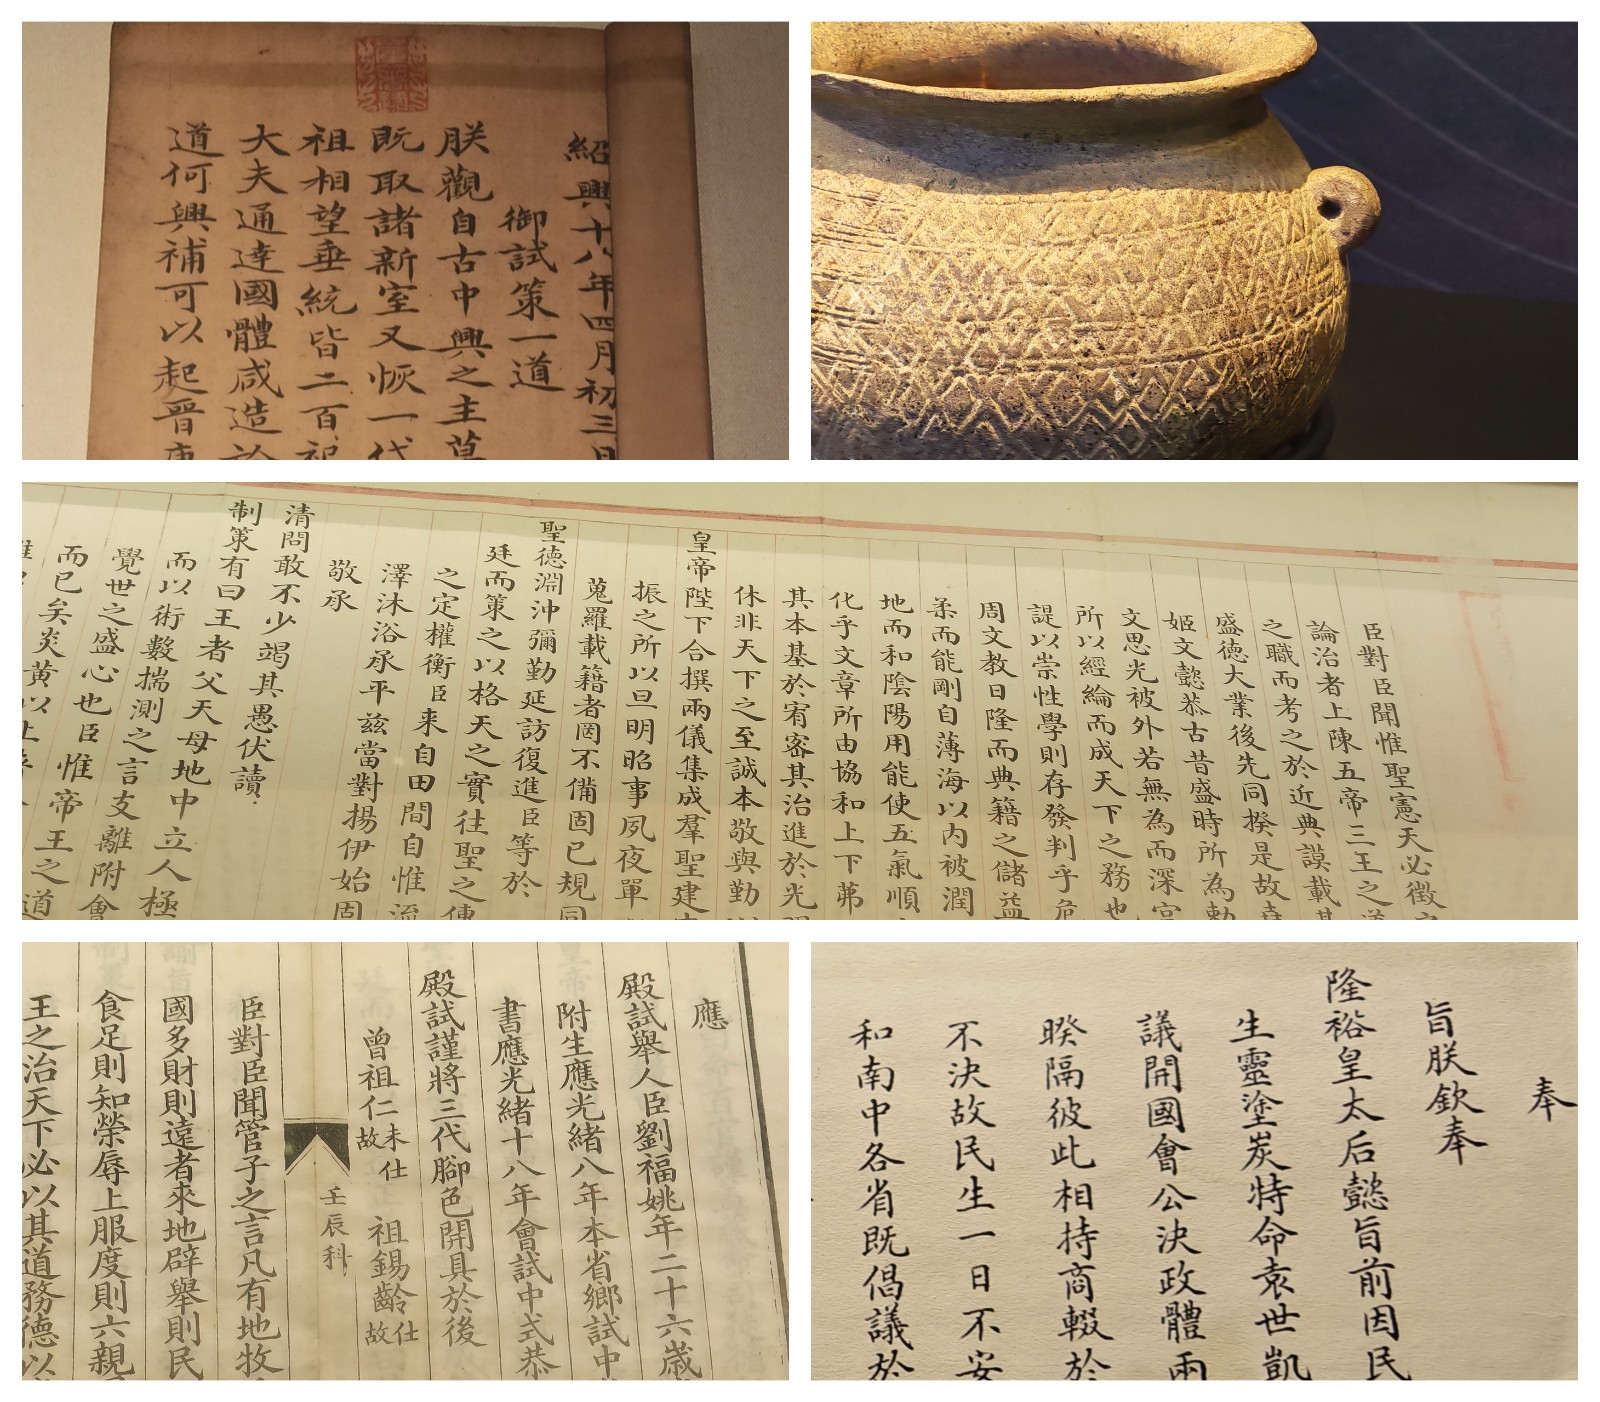 紹興十八年四月初三日
御試策一道
朕觀自古中興之主莫
既取諸新室又恢一代
祖相望垂統皆二百祀
大夫通達國體咸造於
道何興補可以起晉唐
臣對臣聞惟聖憲天必徵
論治者上陳五帝三王之道
之職而考之於近典謨載其
盛德大業後先同揆是故堯
姬文懿恭古昔盛時所為勅
文思光被外若無為而深宮
所以經綸而成天下之務也
諟以崇性學則存發判乎危
周文教日隆而典籍之儲益
柔而能剛自薄海以內被潤
地而和陰陽用能使五氣順
化乎文章所由協和上下茀
其本基於宥密其治進於光
休非天下之至誠本敬與勤
皇帝陛下合撰兩儀集成羣聖建
振之所以旦明昭事夙夜單
蒐羅載籍者罔不備固已規同
聖德淵沖彌勤延訪復進臣等於
廷而策之以格天之實往聖之傳
之定權衡臣来自田間自惟流
澤沐浴承平茲當對揚伊始固
敬承
清問敢不少竭其愚伏讀
制策有曰王者父天母地中立人極
而以術數揣測之言支離附會
覺世之盛心也臣惟帝王之道
而已矣炎黃以上
應
殿試舉人臣劉福姚年二十六歲
附生應光緒八年本省鄉試中
書應光緒十八年會試中式恭
殿試謹將三代腳色開具於後
曾祖仁未仕故 祖錫齡仕故
壬辰科
臣對臣聞管子之言凡有地牧
國多財則遠者來地辟舉則民
食足則知榮辱上服度則六親
王之治天下必以其道務德以
奉
旨朕欽奉
隆裕皇太后懿旨前因民
生靈塗炭特命袁世凱
議開國會公決政體兩
暌隔彼此相持商輟於
不決故民生一日不安
和南中各省既倡議於